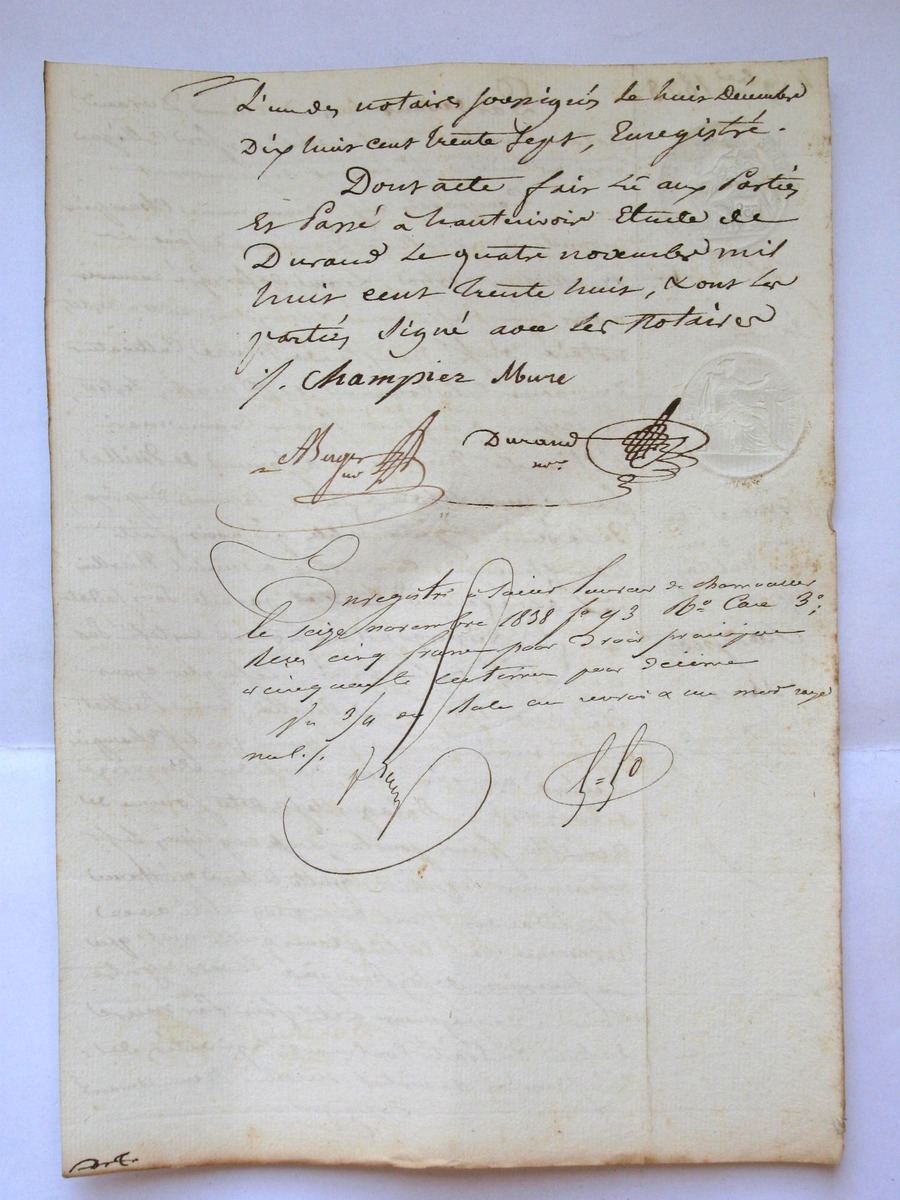 L'un des notaires soussignés le huit Décembre
Dix huit cent trente Sept, Enregistré.
Dont acte fait Lû aux Parties
Et Passé à hauterivoir Etude de
Durand Le quatre novembre mil
huit cent trente huit, & ont les
parties Signé avec les Notaires
/. Champier Mure
Berger
Durand
nre
Enregistré à Saint Laurent de chamousset
le seize novembre 1838 fo 93 Ro Case 3e;
Reçu cinq francs pour droit principal
& cinquante centimes pour décime
un mot rayé
nul ./.